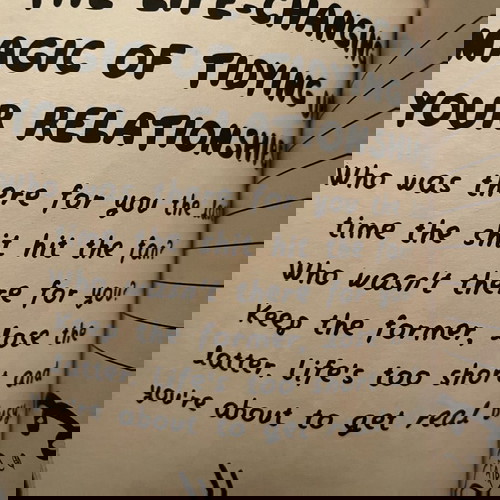 THE LIFE-CHANGING
MAGIC OF TIDYING
YOUR RELATIONSHIPS
Who was there for you the
time the shit hit the fan?
Who wasn't there for you?
Keep the former, lose the
latter. Life's too short and
you're about to get real